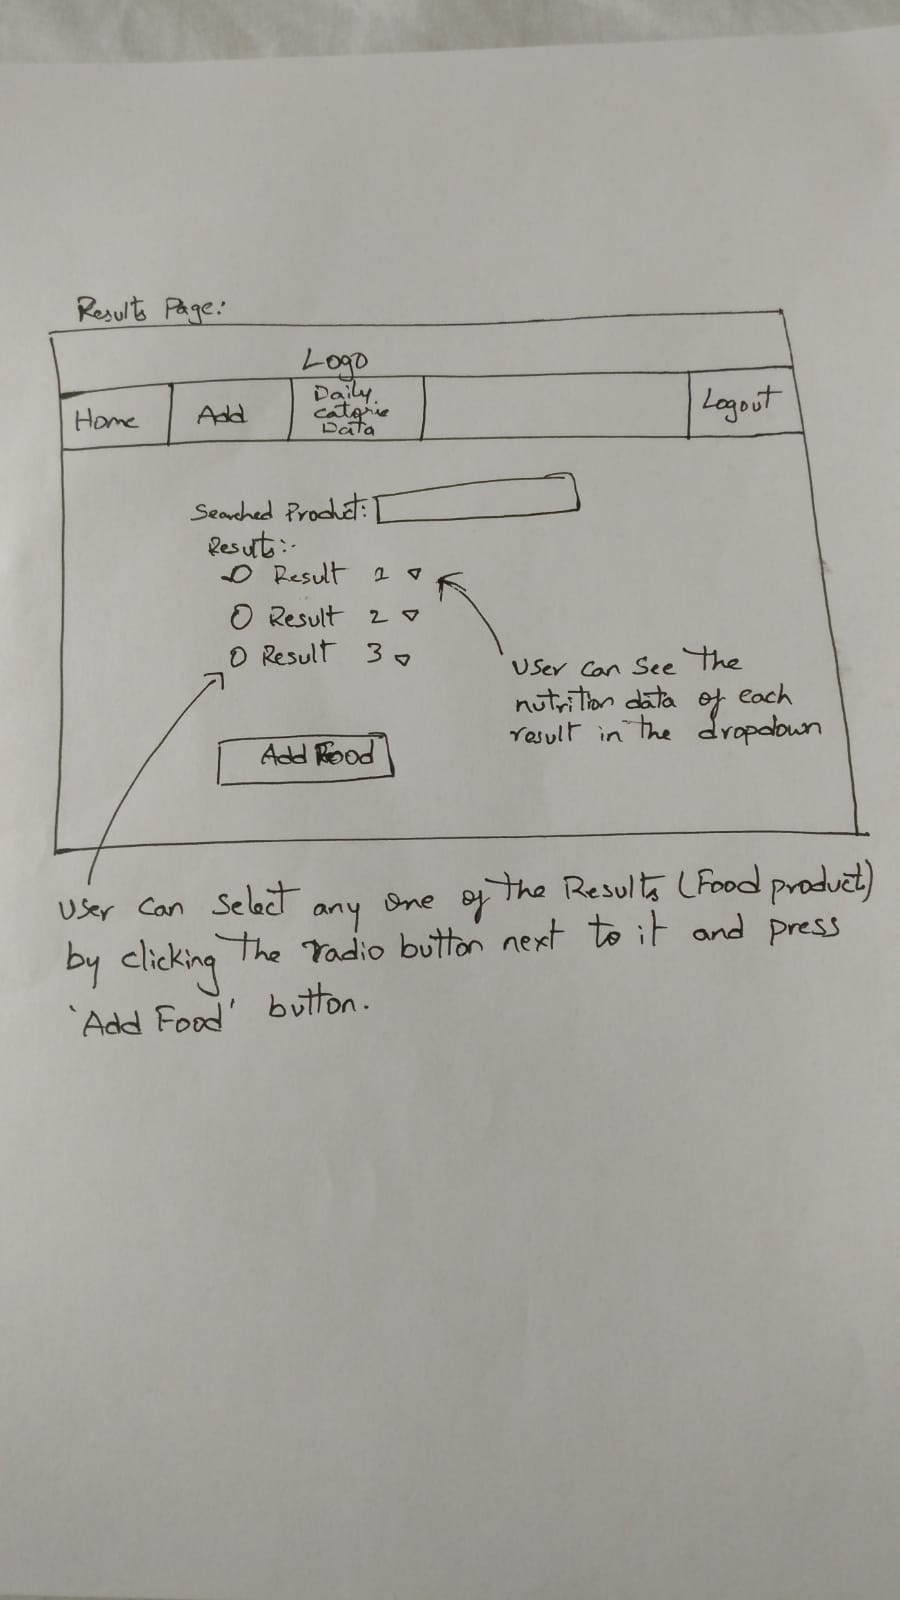 Results Page:
Logo
Home
Add
Daily
Calorie
Data
Logout
Searched Product:
Results:-
Result 1
Result 2
Result 3
User can see the
nutrition data of each
result in the dropdown
Add Food
User can select any one of the Results (Food product)
by clicking the radio button next to it and press
'Add Food' button.